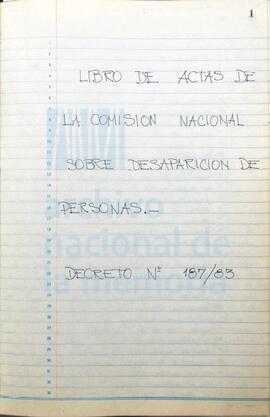 1
LIBRO DE ACTAS DE
LA COMISION NACIONAL
SOBRE DESAPARICION DE
PERSONAS.—
DECRETO Nº 187/83
archivo
nacional de
la memoria